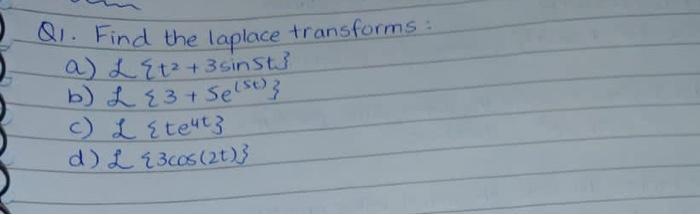 Q1. Find the laplace transforms:
a) ℒ {t² + 3sin5t}
b) ℒ {3 + 5e^(5t)}
c) ℒ {te^4t}
d) ℒ {3cos(2t)}